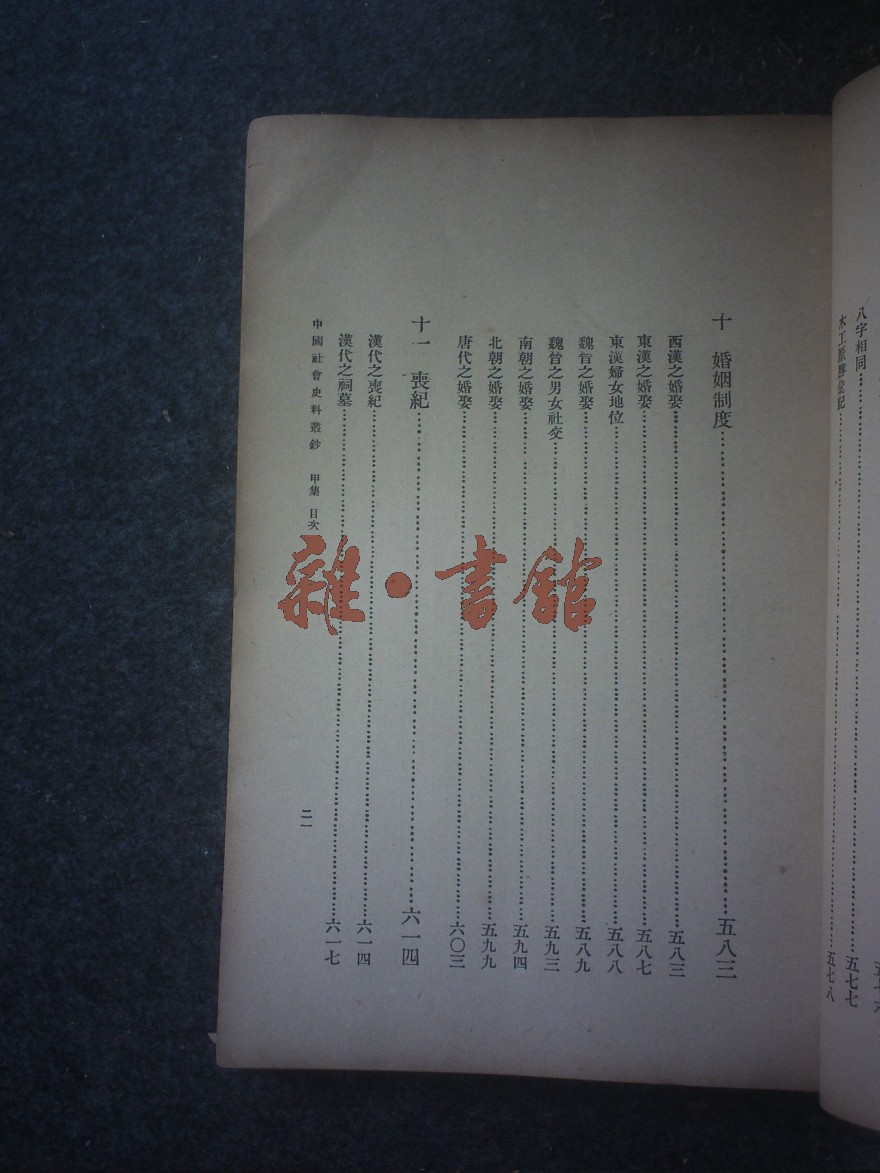 八字相同……五七七
木工厭勝……記……五七八
十 婚姻制度……五八三
西漢之婚娶……五八三
東漢之婚娶……五八七
東漢婦女地位……五八八
魏晉之婚娶……五八九
魏晉之男女社交……五九三
南朝之婚娶……五九四
北朝之婚娶……五九九
唐代之婚娶……六〇三
十一 喪紀……六一四
漢代之喪紀……六一四
漢代之祠墓……六一七
中國社會史料叢鈔 甲集 目次
二一
雜·書館